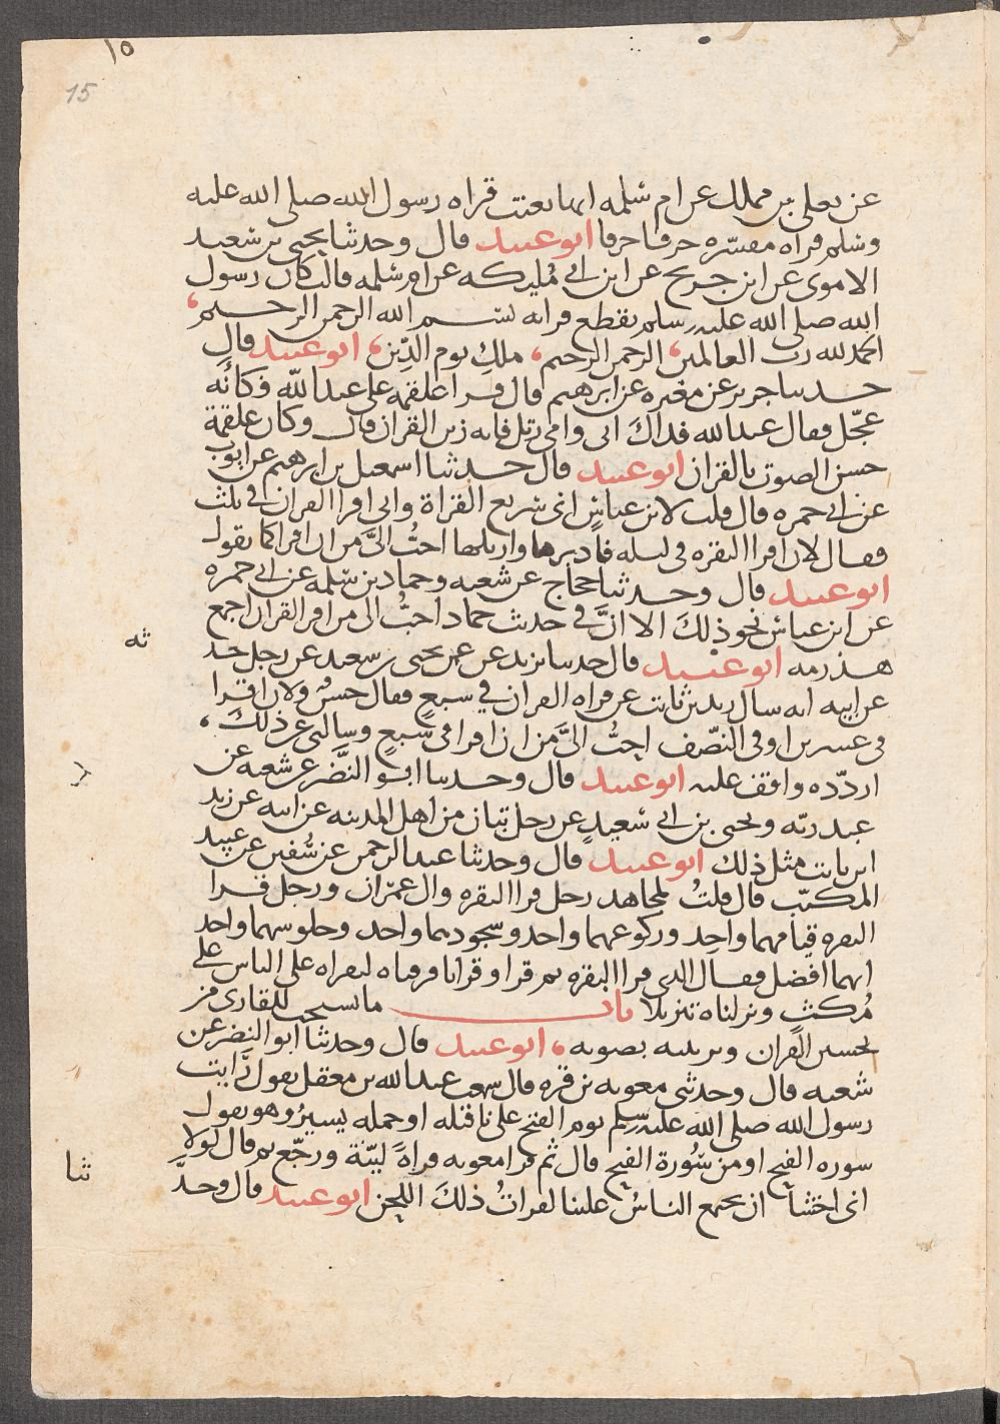 ١٥
15
عن يعلى بن مملك عن ام سلمه انها نعتت قراه رسول الله صلى الله عليه
وسلم قراه مفسّره حرفا حرفا ابو عبيد قال وحدثنا يحيى بن سعيد
الاموى عن ابن جريج عن ابن ابي مُليكه عن ام سلمه قالت كان رسول
الله صلى الله عليه وسلم يقطع قراته بسم الله الرحمن الرحيم،
الحمد لله رب العالمين، الرحمن الرحيم، ملك يوم الدِّين، ابو عبيد قال
حدثنا جرير عن مغيره عن ابرهيم قال قرا علقمه على عبد الله فكأنه
عجّل فقال عبد الله فداك ابى وامى رتل فانه زين القران قال وكان علقمة
حسن الصوت بالقران ابو عبيد قال حدثنا اسمعيل بن ابرهيم عن ايوب
عن ابي حمره قال قلت لابن عباس انى سريع القراة وانى اقرا القران في ثلث
فقال لان اقرا البقره فى ليله فادبرها وارتلها احبُّ الىَّ من ان اقرا كما تقول
ابو عبيد قال وحدثنا حجاج عن شعبه وحماد بن سلمه عن ابي حمره
عن ابن عباس نحو ذلك الا انَّ في حدث حماد احبُّ الى من ان اقرا القران اجمع
ثه
هذرمه ابو عبيد قال حدثنا يزيد عن يحيى بن سعيد عن رجل حد
عن ابيه انه سال زيد بن ثابت عن قراه القران في سبع فقال حسنٌ ولان اقرا
فى عشرين او فى النصّف احبُّ الىَّ من ان اقرا فى سبع وسالنى عن ذلك،
اردّده واقف عليه ابو عبيد قال وحدثنا ابو النَّضر عن شعبه عن
عبد ربّه ويحيى بن ابي سعيدٍ عن رجل تبان من اهل المدينه عن ابيه عن زيد
ابن ثابت مثل ذلك ابو عبيد قال وحدثنا عبد الرحمن عن سُفين عن عبيد
المكتب قال قلتُ لمجاهد رجل قرا البقره وال عمرٰان ورجل قرا
البقره قيامهما واحد وركوعهما واحد وسجودهما واحد وجلوسهما واحد
ايهما افضل فقال الذى قرا البقره ثم قرا وقرانا فرقناه لتقراه على الناس على
مُكثٍ ونزلناه تنزيلا باب ما يستحب للقارى من
تحسين القران وتزيينه بصوته، ابو عبيد قال وحدثنا ابو النضر عن
شعبه قال وحدثنى معويه بن قره قال سمعت عبد الله بن معقل يقول رَأيت
رسول الله صلى الله عليه وسلم يوم الفتح على ناقته او جمله يسيرُ وهو يقول
سوره الفتح او من سُورة الفتح قال ثم قرا معويه قراةً ليّنة ورجّع ثم قال لولا
انى اخشا ان يجتمع الناسُ علينا لقراتُ ذلك اللحن ابو عبيد قال وحدَّ
ثنا